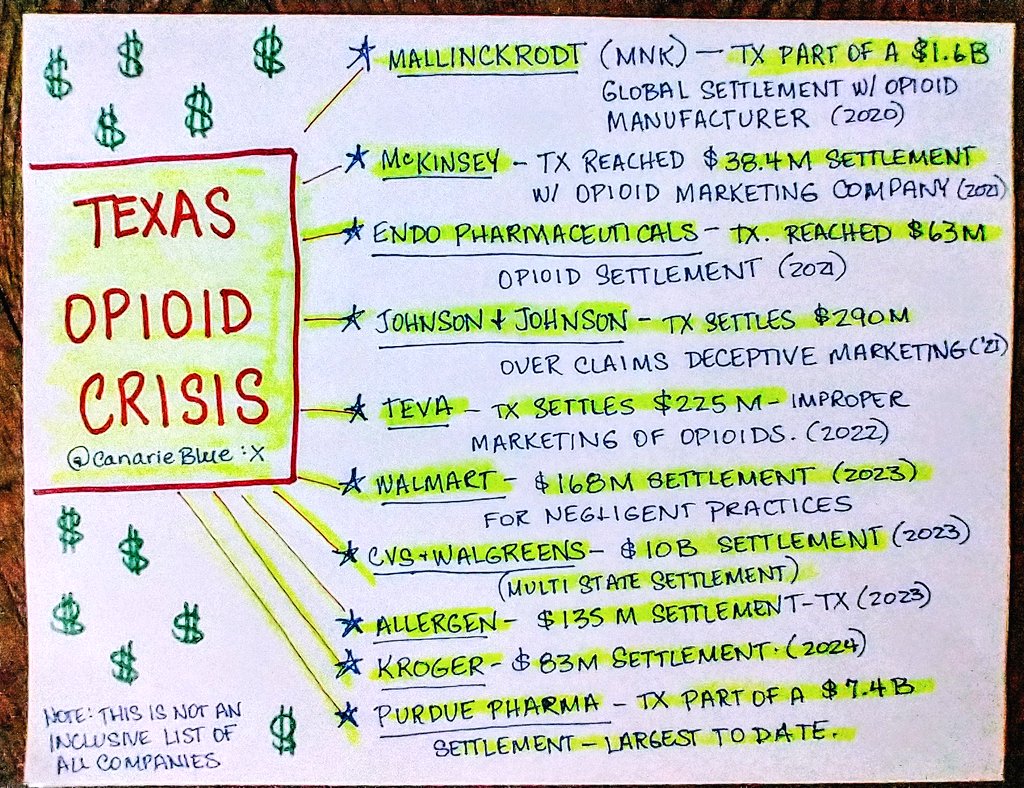 TEXAS
OPIOID
CRISIS
@canarieBlue :X
MALLINCKRODT (MNK) — TX PART OF A $1.6B
GLOBAL SETTLEMENT W/ OPIOID
MANUFACTURER (2020)
McKINSEY - TX REACHED $38.4M SETTLEMENT
W/ OPIOID MARKETING COMPANY (2021)
ENDO PHARMACEUTICALS - TX. REACHED $63M
OPIOID SETTLEMENT (2021)
JOHNSON + JOHNSON - TX SETTLES $290M
OVER CLAIMS DECEPTIVE MARKETING ('21)
TEVA - TX SETTLES $225 M - IMPROPER
MARKETING OF OPIOIDS. (2022)
WALMART - $168M SETTLEMENT (2023)
FOR NEGLIGENT PRACTICES
CVS + WALGREENS - $10B SETTLEMENT (2023)
(MULTI STATE SETTLEMENT)
ALLERGEN - $135 M SETTLEMENT - TX (2023)
KROGER - $83M SETTLEMENT. (2024)
PURDUE PHARMA - TX PART OF A $7.4B
SETTLEMENT - LARGEST TO DATE.
NOTE: THIS IS NOT AN
INCLUSIVE LIST OF
ALL COMPANIES